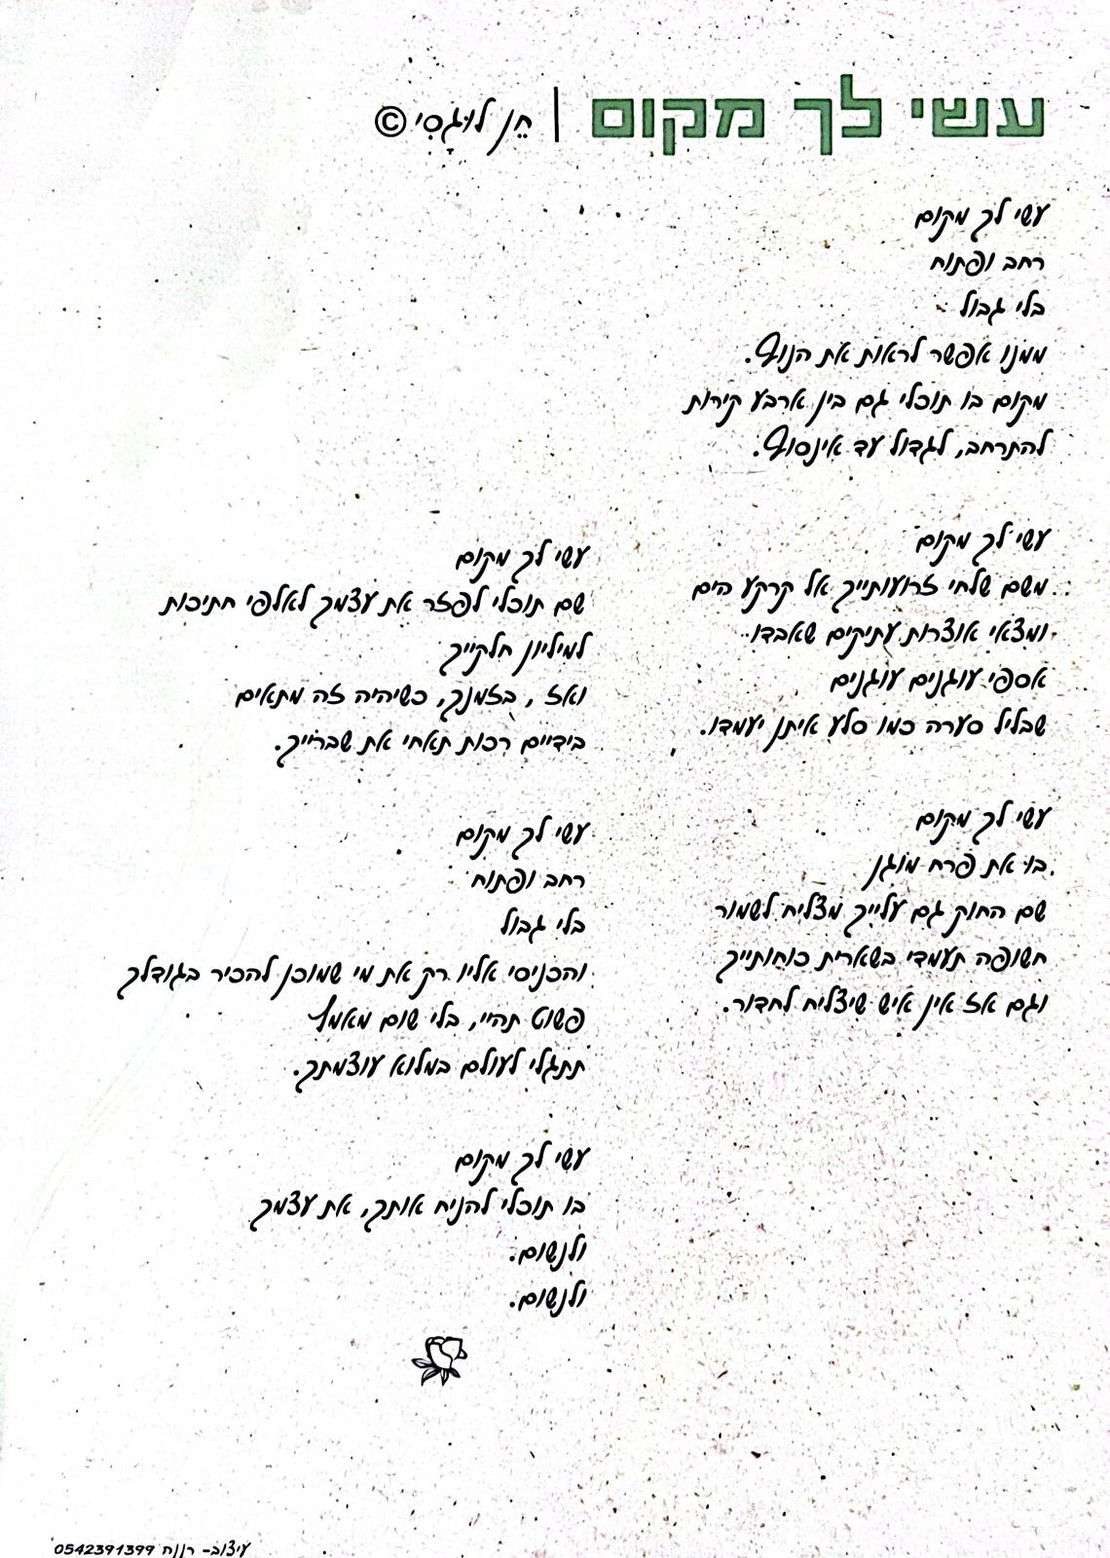 עשי לך מקום | חֵן לוּגָסִי ©
עשי לך מקום
רחב ופתוח
בלי גבול
ממנו אפשר לראות את הנוף.
מקום בו תוכלי גם בין ארבע קירות
להתרחב, לגדול עד אינסוף.
עשי לך מקום
משם שלחי זרועותייך אל קרקע הים
ומצאי אוצרות עתיקים שאבדו
אספי עוגנים עוגנים
שבליל סערה כמו סלע איתן יעמדו.
עשי לך מקום
בו את פרח מוגן
שם החוק גם עלייך מצליח לשמור
חשופה תעמדי בשארית כוחותייך
וגם אז אין איש שיצליח לחדור.
עשי לך מקום
שם תוכלי לפזר את עצמך לאלפי חתיכות
למיליון חלקייך
ואז , בזמנך, כשיהיה זה מתאים
בידיים רכות תאחי את שברייך.
עשי לך מקום
רחב ופתוח
בלי גבול
והכניסי אליו רק את מי שמוכן להכיר בגודלך
פשוט תהיי, בלי שום מאמץ
תתגלי לעולם במלוא עוצמתך.
עשי לך מקום
בו תוכלי להניח אותך, את עצמך
ולנשום.
ולנשום.
עיצוב- רננה 0542391399